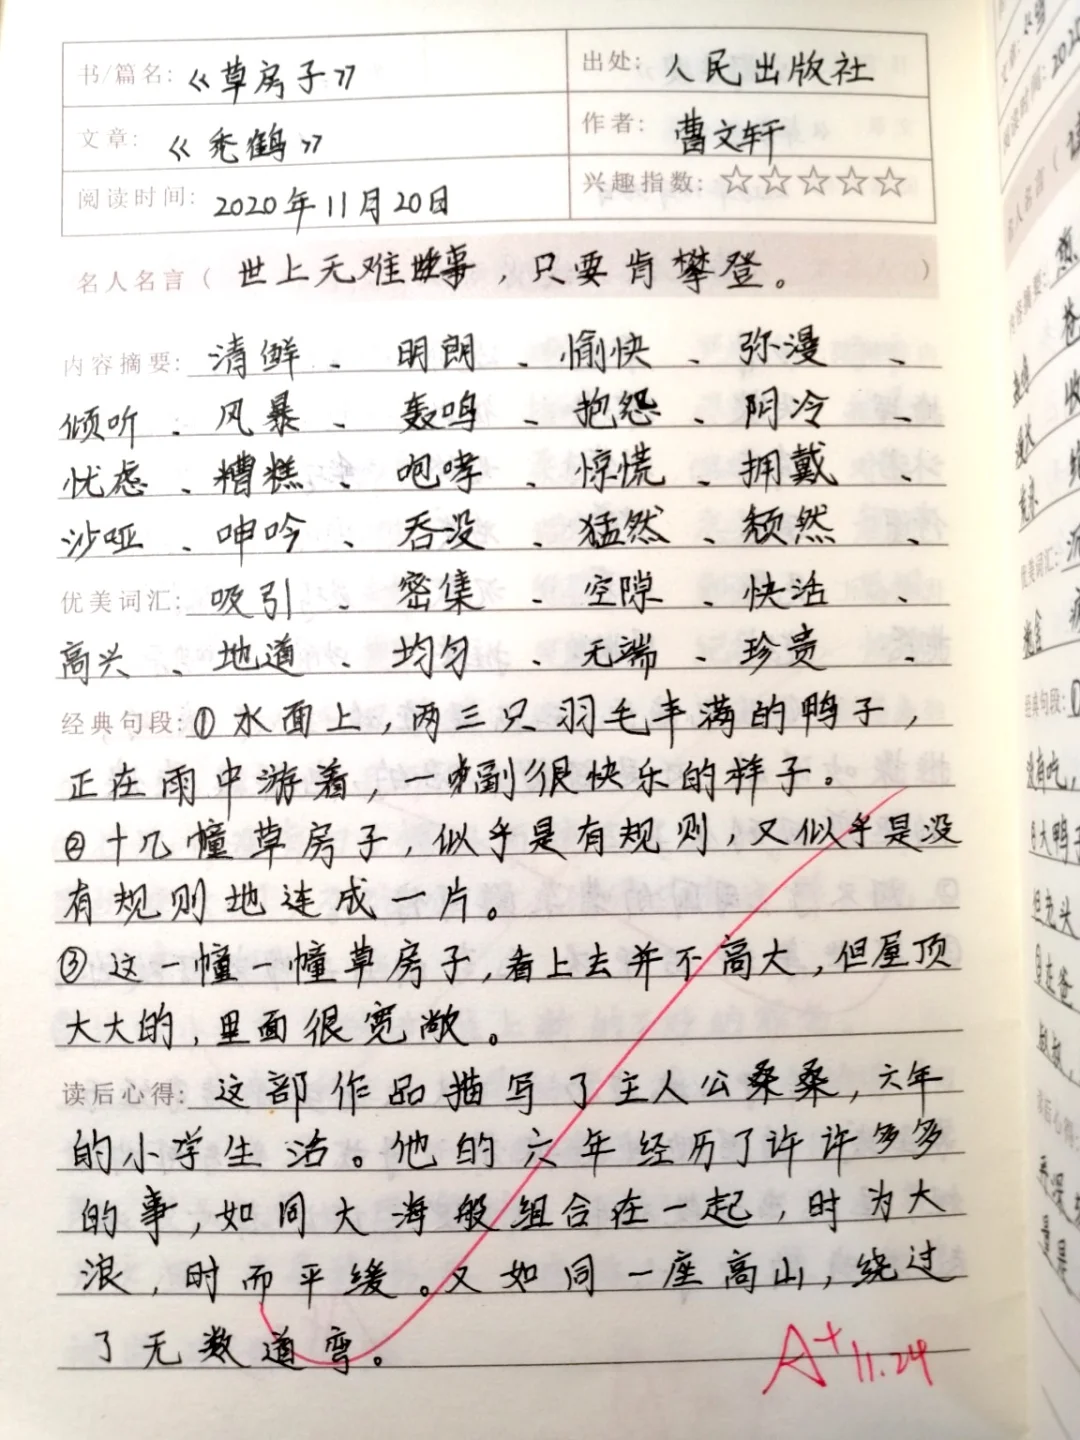 书/篇名：《草房子》 出处：人民出版社
文章：《秃鹤》 作者：曹文轩
阅读时间：2020年11月20日 兴趣指数：☆☆☆☆☆
名人名言（世上无难事，只要肯攀登。）
内容摘要：清鲜、明朗、愉快、弥漫、
倾听、风暴、轰鸣、抱怨、阴冷、
忧虑、糟糕、咆哮、惊慌、拥戴、
沙哑、呻吟、吞没、猛然、颓然、
优美词汇：吸引、密集、空隙、快活、
高兴、地道、均匀、无端、珍贵、
经典句段：①水面上，两三只羽毛丰满的鸭子，
正在雨中游着，一副很快乐的样子。
②十几幢草房子，似乎是有规则，又似乎是没
有规则地连成一片。
③这一幢一幢草房子，看上去并不高大，但屋顶
大大的，里面很宽敞。
读后心得：这部作品描写了主人公桑桑，六年
的小学生活。他的六年经历了许许多多
的事，如同大海般组合在一起，时为大
浪，时而平缓。又如同一座高山，绕过
了无数道弯。
A+ 11.24